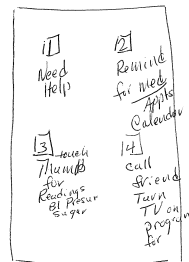 1
Need
Help
2
Remind
for Med
Appts
Calender
3 touch
Thumb
for
Readings
Bl Presur
Sugar
4
call
friend
Turn
TV on
program
for